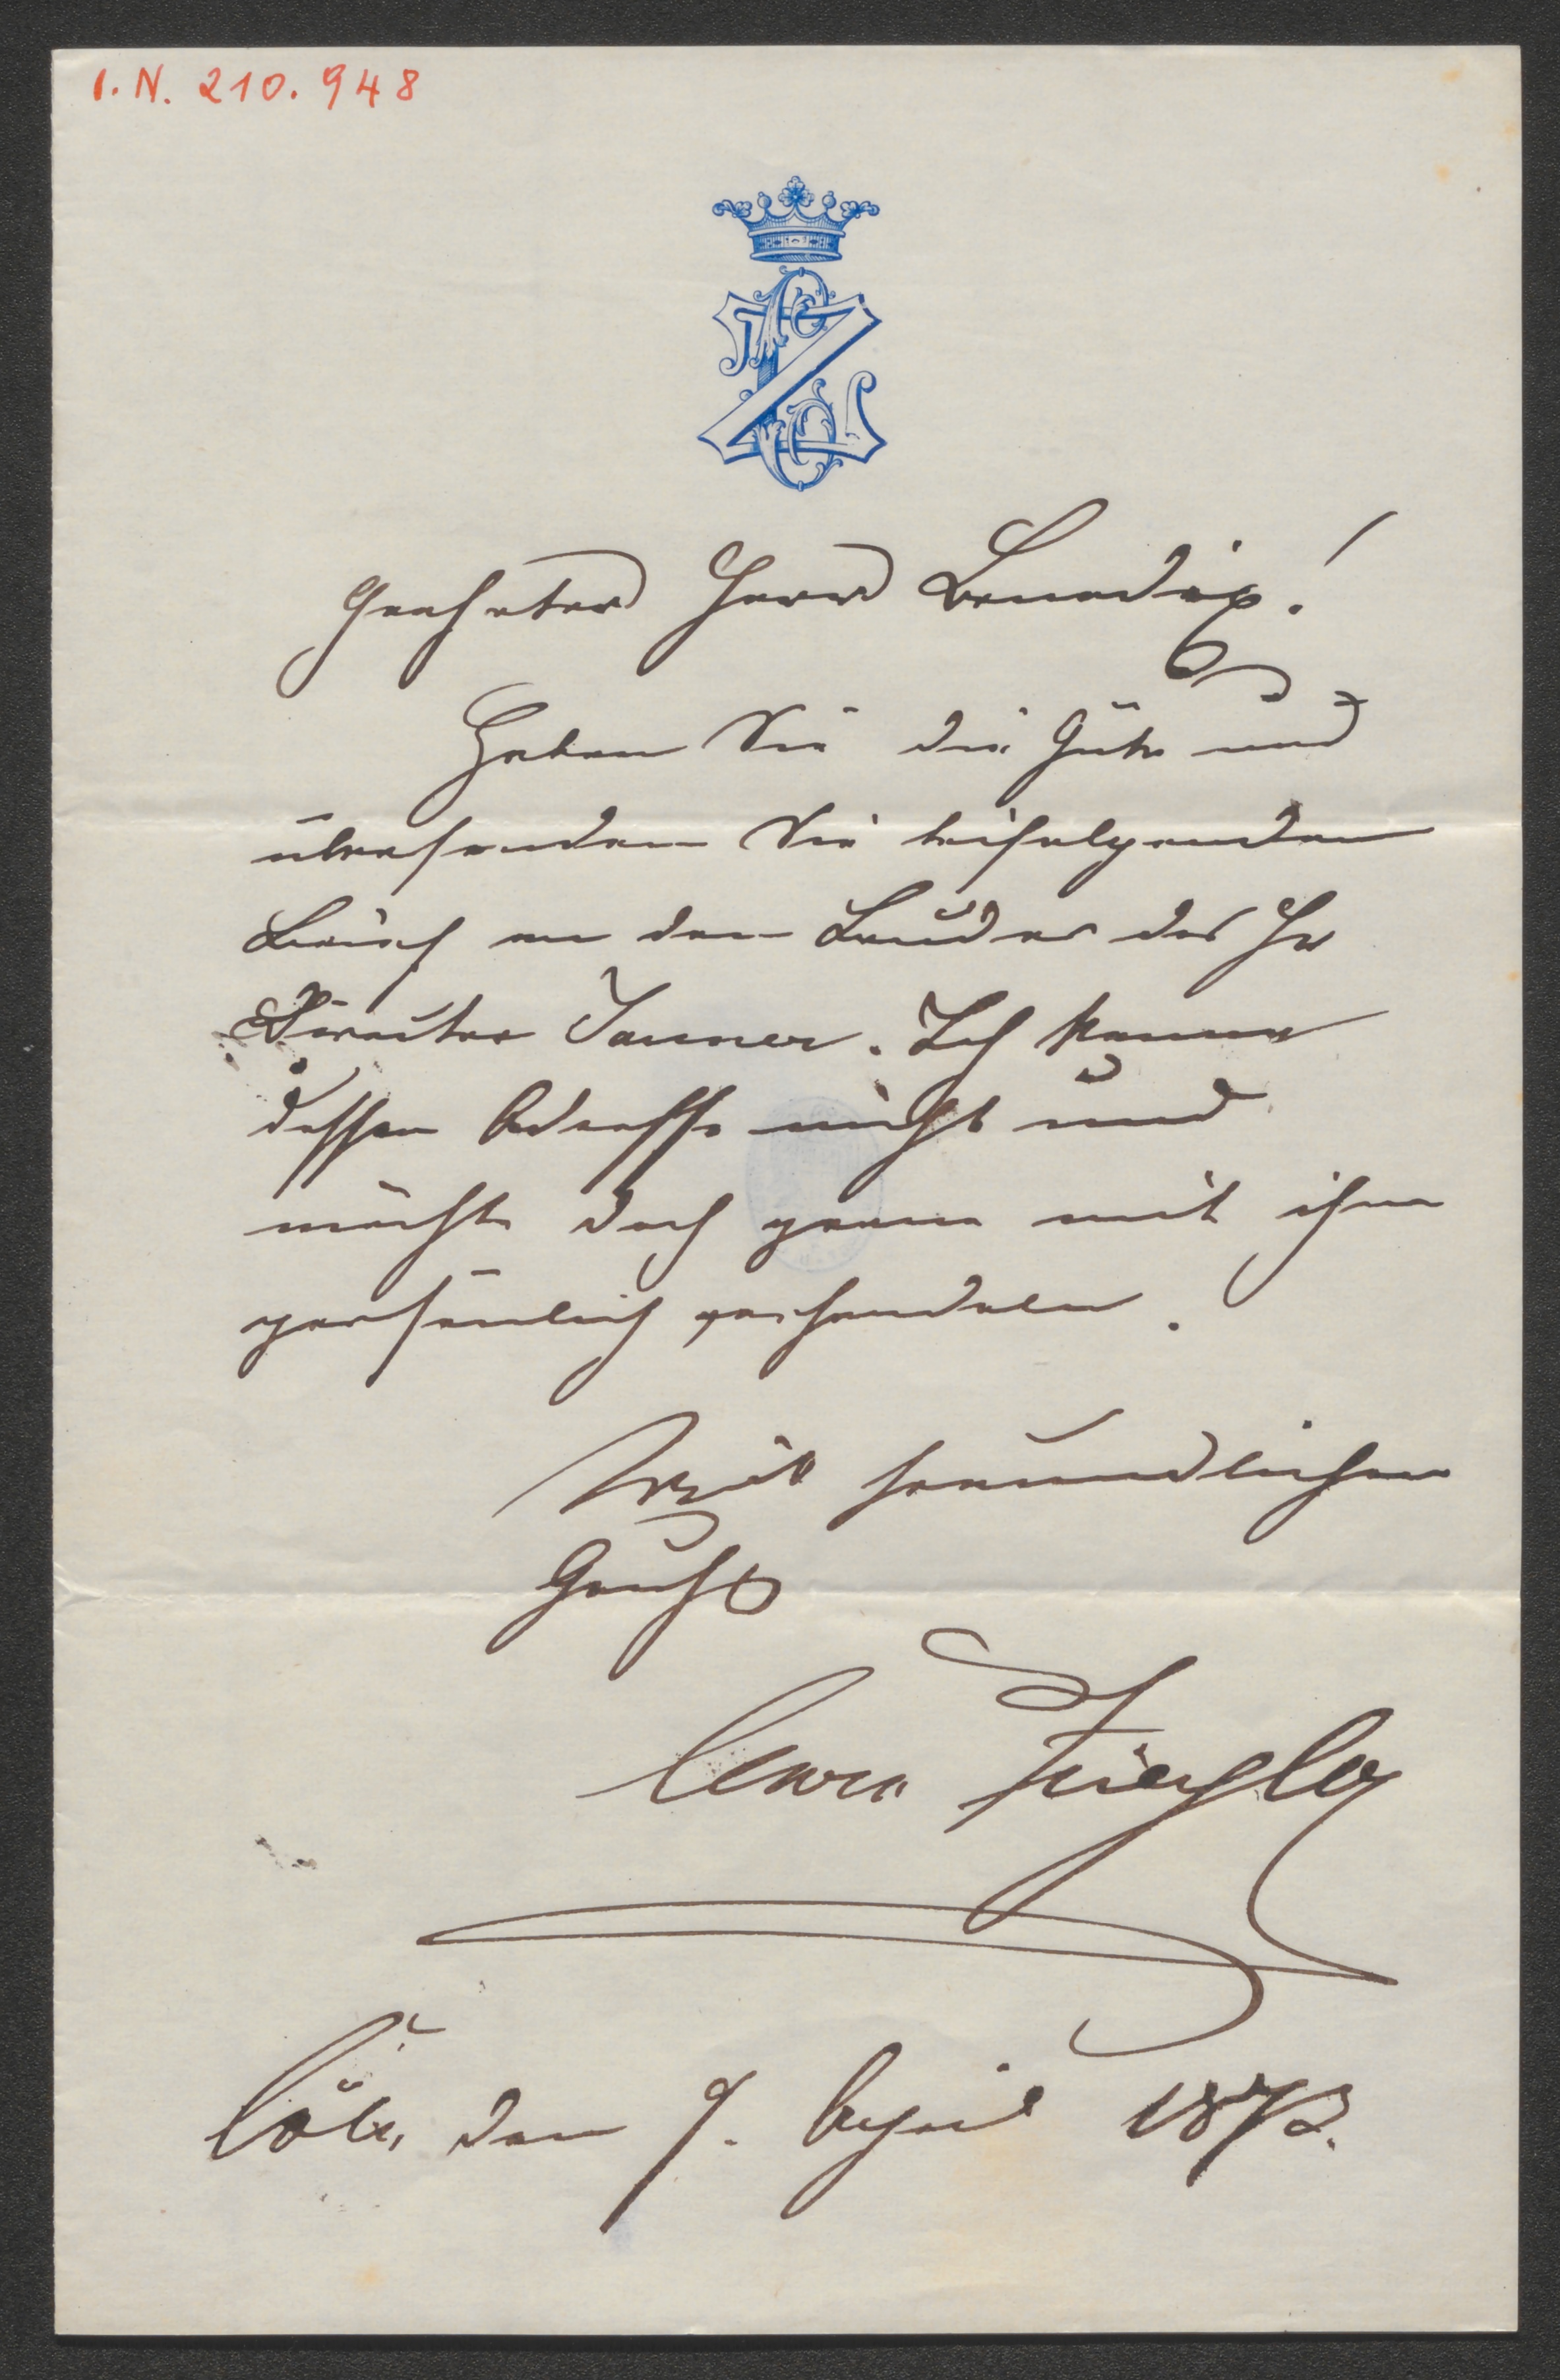 I. N. 210.948
Geehrter Herr Benedix!
Haben Sie die Güte und
übersenden Sie beifolgenden
Brief an den Bruder des Hr
Director Jauner. Ich kenne
dessen Adresse nicht und
möchte doch gerne mit ihm
persönlich verhandeln.
Mit freundlichem
Gruße
Clara Ziegler
Cöln, den 9. April 1873.